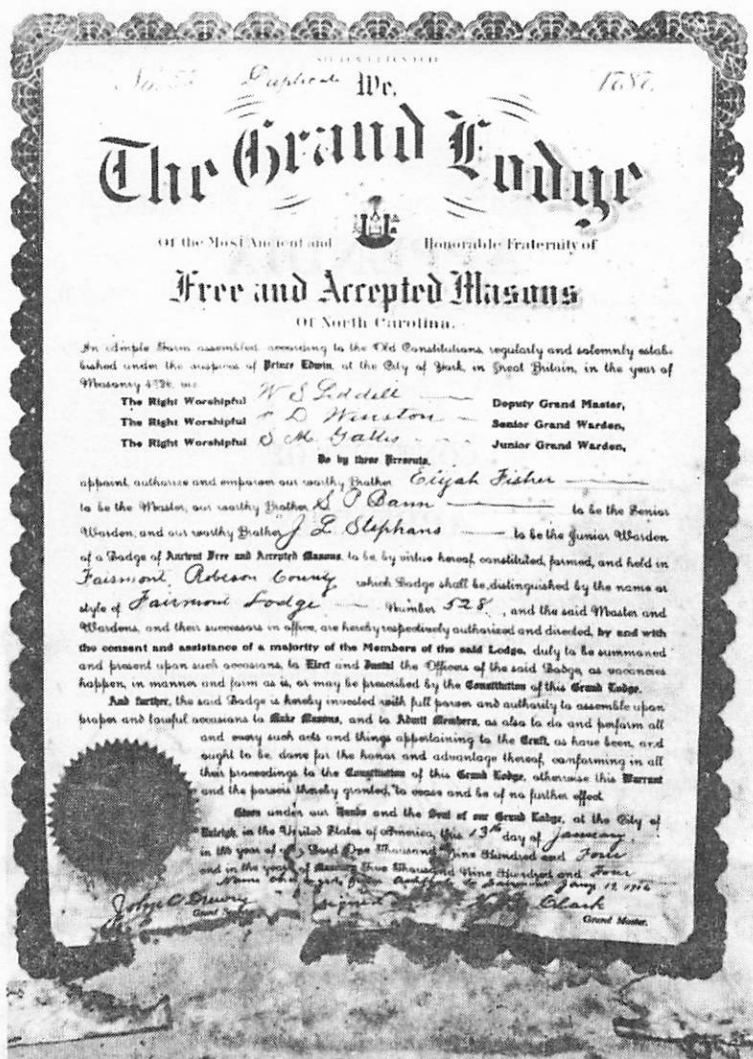 Duplicate We, 1787.
The Grand Lodge
Of the Most Ancient and Honorable Fraternity of
Free and Accepted Masons
Of North Carolina.
In Ample Form assembled according to the Old Constitutions, regularly and solemnly estab-
lished under the auspices of Prince Edwin, at the City of York, in Great Britain, in the year of
Masonry
The Right Worshipful W S Liddell Deputy Grand Master,
The Right Worshipful D Winston Senior Grand Warden,
The Right Worshipful S M Gattis Junior Grand Warden,
Do by these Presents,
appoint, authorize and empower our worthy Brother Elijah Fisher
to be the Master, our worthy Brother S P to be the Senior
Warden, and our worthy Brother J L Stephans to be the Junior Warden
of a Lodge of Ancient Free and Accepted Masons, to be by virtue hereof, constituted, formed, and held in
Fairmont, Robeson County which Lodge shall be distinguished by the name or
style of Fairmont Lodge Number 528, and the said Master and
Wardens, and their successors in office, are hereby respectively authorized and directed, by and with
the consent and assistance of a majority of the Members of the said Lodge, duly to be summoned
and present upon such occasions, to Elect and Install the Officers of the said Lodge, as vacancies
happen, in manner and form as is, or may be prescribed by the Constitution of this Grand Lodge.
And further, the said Lodge is hereby invested with full power and authority to assemble upon
proper and lawful occasions to Make Masons, and to Admit Members, as also to do and perform all
and every such acts and things appertaining to the Craft, as have been, and
ought to be, done for the honor and advantage thereof, conforming in all
their proceedings to the Constitution of this Grand Lodge, otherwise this Warrant
and the powers thereby granted, to cease and be of no further effect.
Given under our Hands and the Seal of our Grand Lodge, at the City of
Raleigh, in the United States of America, this 13th day of January,
in the year of Lord One Thousand Nine Hundred and Four
and in the year of Masonry Five Thousand Nine Hundred and Four
Name changed from to Fairmont Jany
John C Drewry signed Clark
Grand Grand Master.